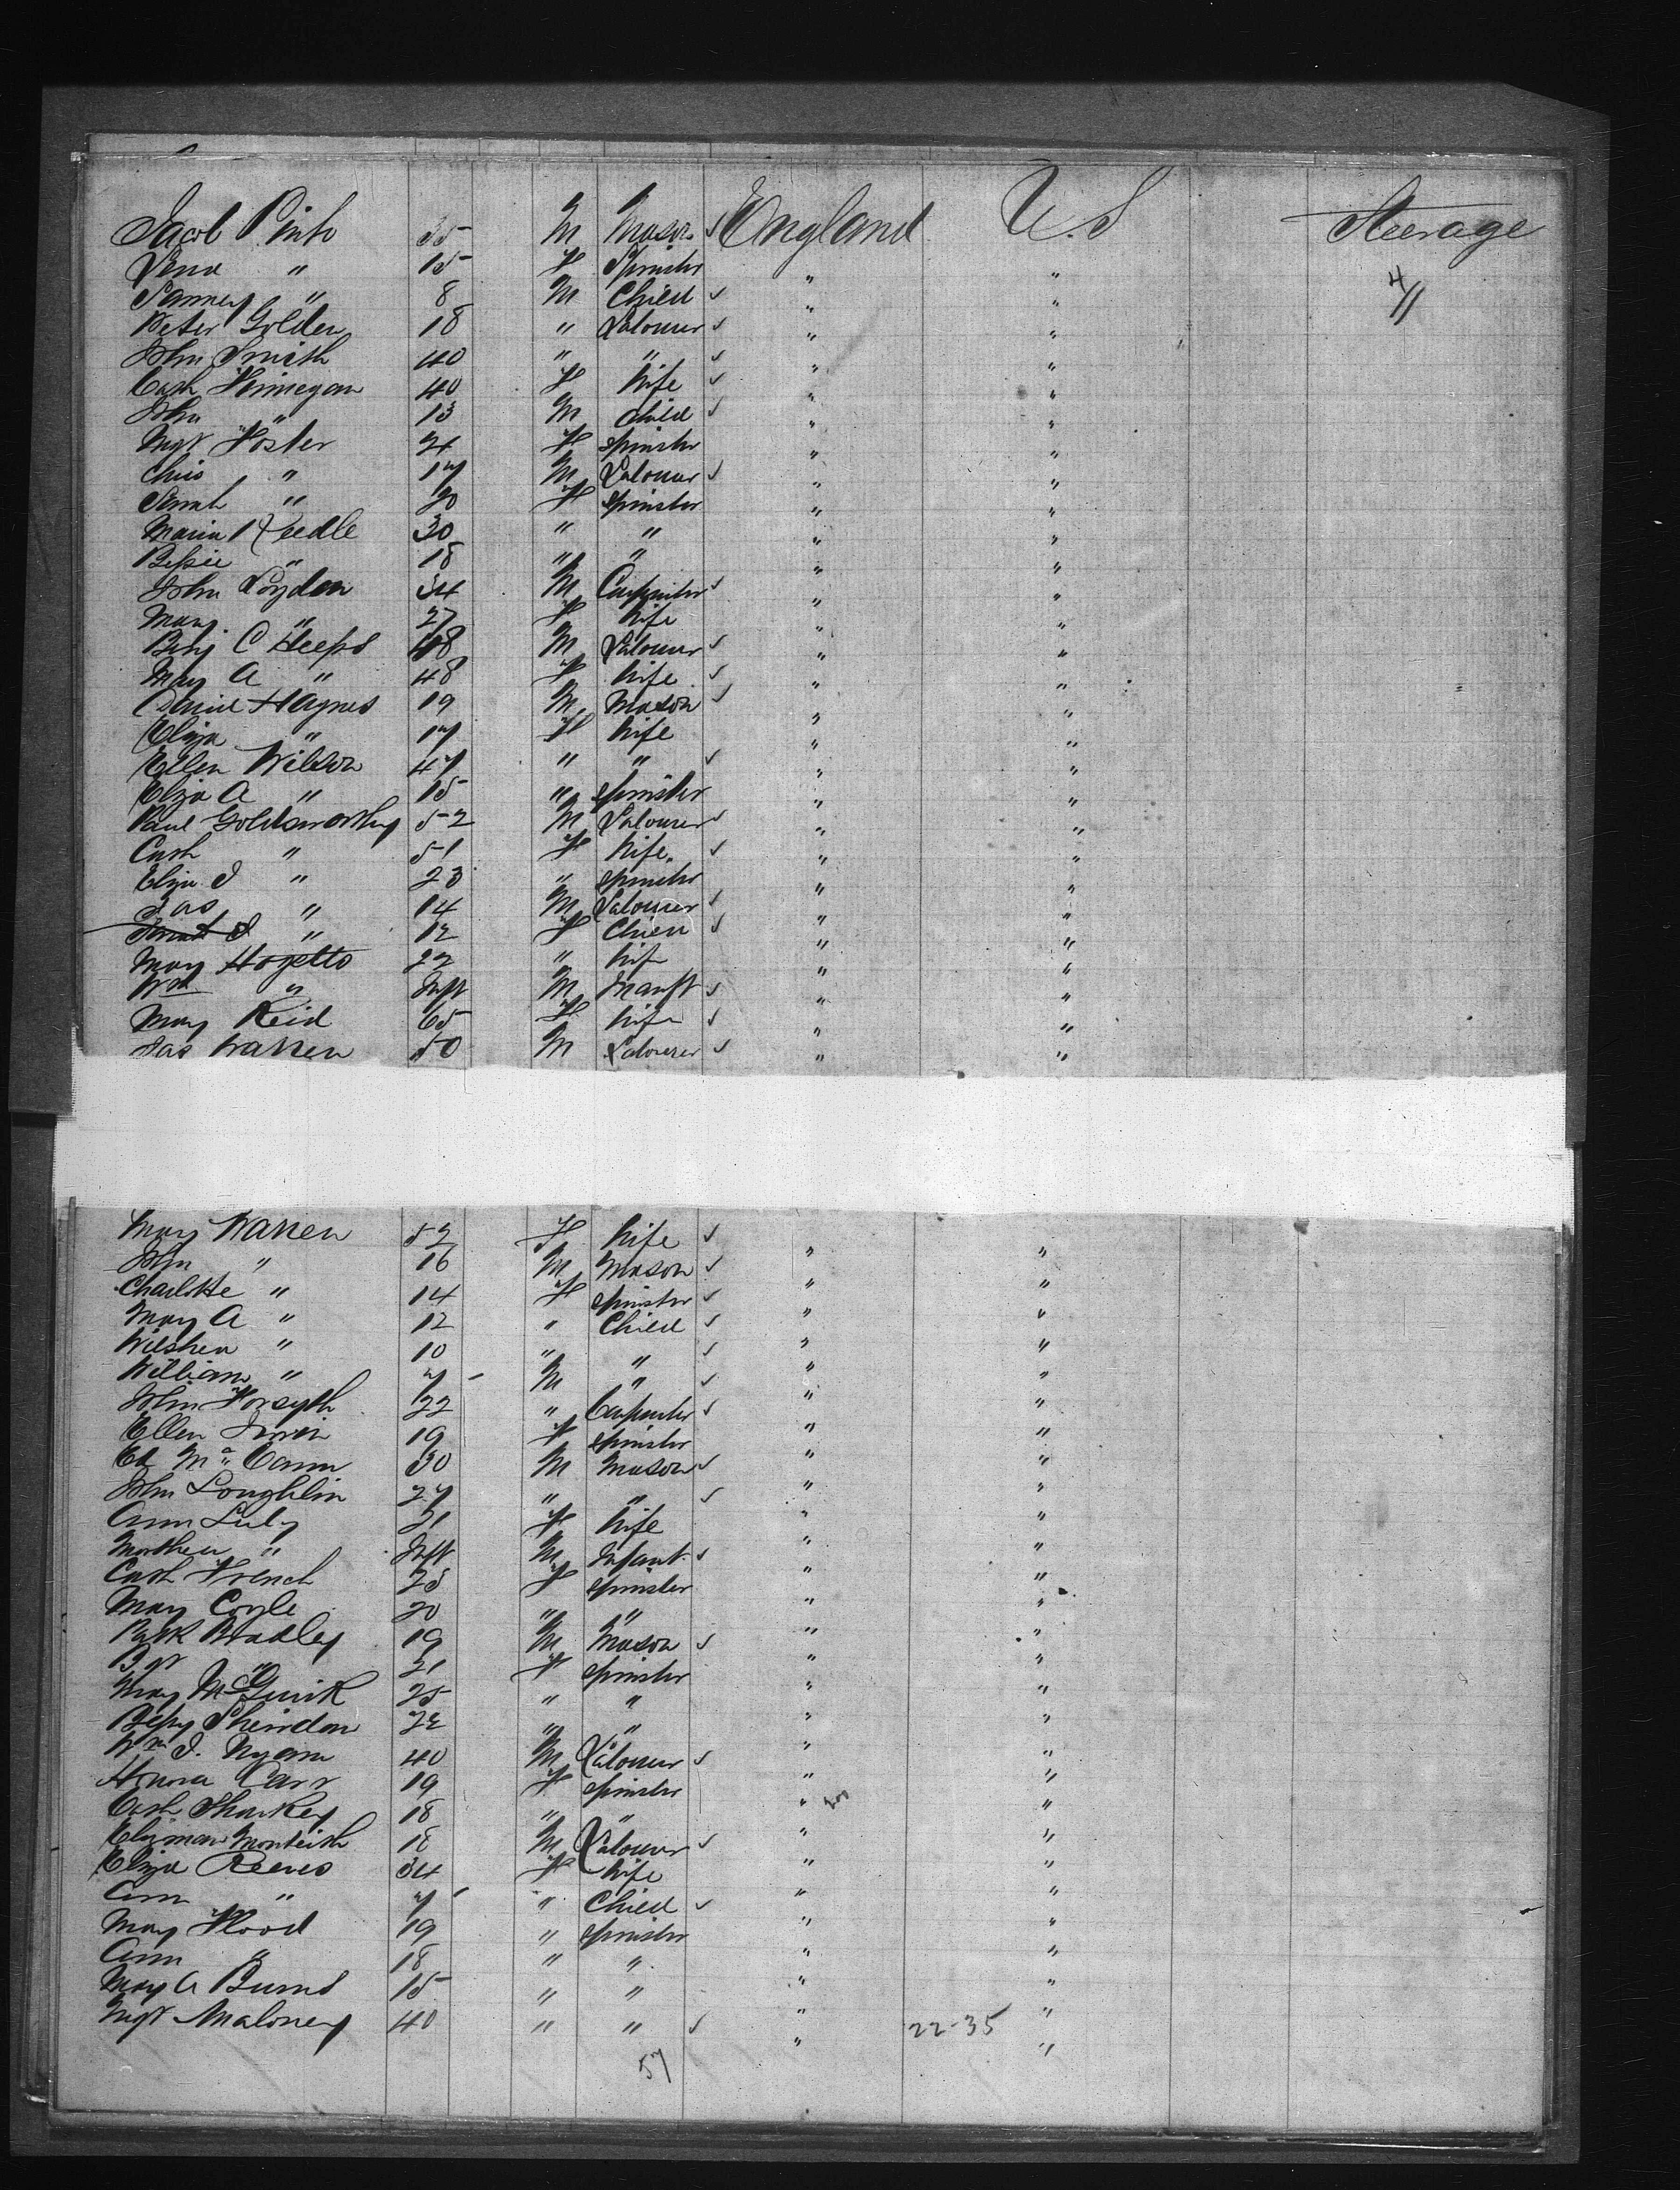 Jacob Pinto 35 M Mason ✓ England U.S Steerage
Lena " 15 F Spinster " "
Sammy " 8 M Child ✓ " " 4 //
Peter Golden 18 " Labourer ✓ " "
John Smith 40 " " ✓ " "
Cath Finnegan 40 F Wife ✓ " "
John " 13 M Child ✓ " "
Mgt Foster 24 F Spinster " "
Chris " 17 M Labourer ✓ " "
Sarah " 20 F Spinster " "
Maria Keedle 30 " " " "
Bessie " 18 " " " "
John Loyden 34 M Carpenter ✓ " "
Mary " 27 F Wife " "
Benj C Heeps 48 M Labourer ✓ " "
Mary A " 48 F Wife ✓ " "
Daniel Haynes 19 M Mason ✓ " "
Eliza " 17 F Wife " "
Ellen Wilson 47 " " ✓ " "
Eliza A " 15 " Spinster " "
Paul Goldsworthy 52 M Labourer ✓ " "
Cath " 51 F Wife ✓ " "
Eliza J " 23 " Spinster " "
Jas " 14 M Labourer ✓ " "
Sarah J " 12 F Child ✓ " "
Mary Hozetto 22 " Wife " "
Wm " Inft M Infant ✓ " "
Mary Reid 65 F Wife ✓ " "
Jas Warren 50 M Labourer ✓ " "
Mary Warren 52 F Wife ✓ " "
John " 16 M Mason ✓ " "
Charlotte " 14 F Spinster ✓ " "
Mary A " 12 " Child ✓ " "
" 10 " " ✓ " "
William " 7 M " ✓ " "
John Forsyth 22 " Carpenter ✓ " "
Ellen Irwin 19 F Spinster " "
Ed McCann 30 M Mason ✓ " "
John Loughlin 27 " " ✓ " "
Ann Luby 21 F Wife " "
Matthew " Inft M Infant ✓ " "
Cath French 25 F Spinster " "
Mary Coyle 20 " " " "
Patk Bradley 19 M Mason ✓ " "
Bgt " 21 F Spinster " "
Mary McGurik 25 " " " "
Betsy Sheridan 22 " " " "
Wm J. Nyann 40 M Labourer ✓ " "
Honora Carr 19 F Spinster " "
Cath Sharkey 18 " " " "
Monteith 18 M Labourer ✓ " "
Eliza Reeves 34 F Wife " "
Ann " 7 " Child ✓ " "
Mary Flood 19 " Spinster " "
Ann " 18 " " " "
Mary A Burns 15 " " " "
Mgt Maloney 40 " " ✓ " 22-35 "
57